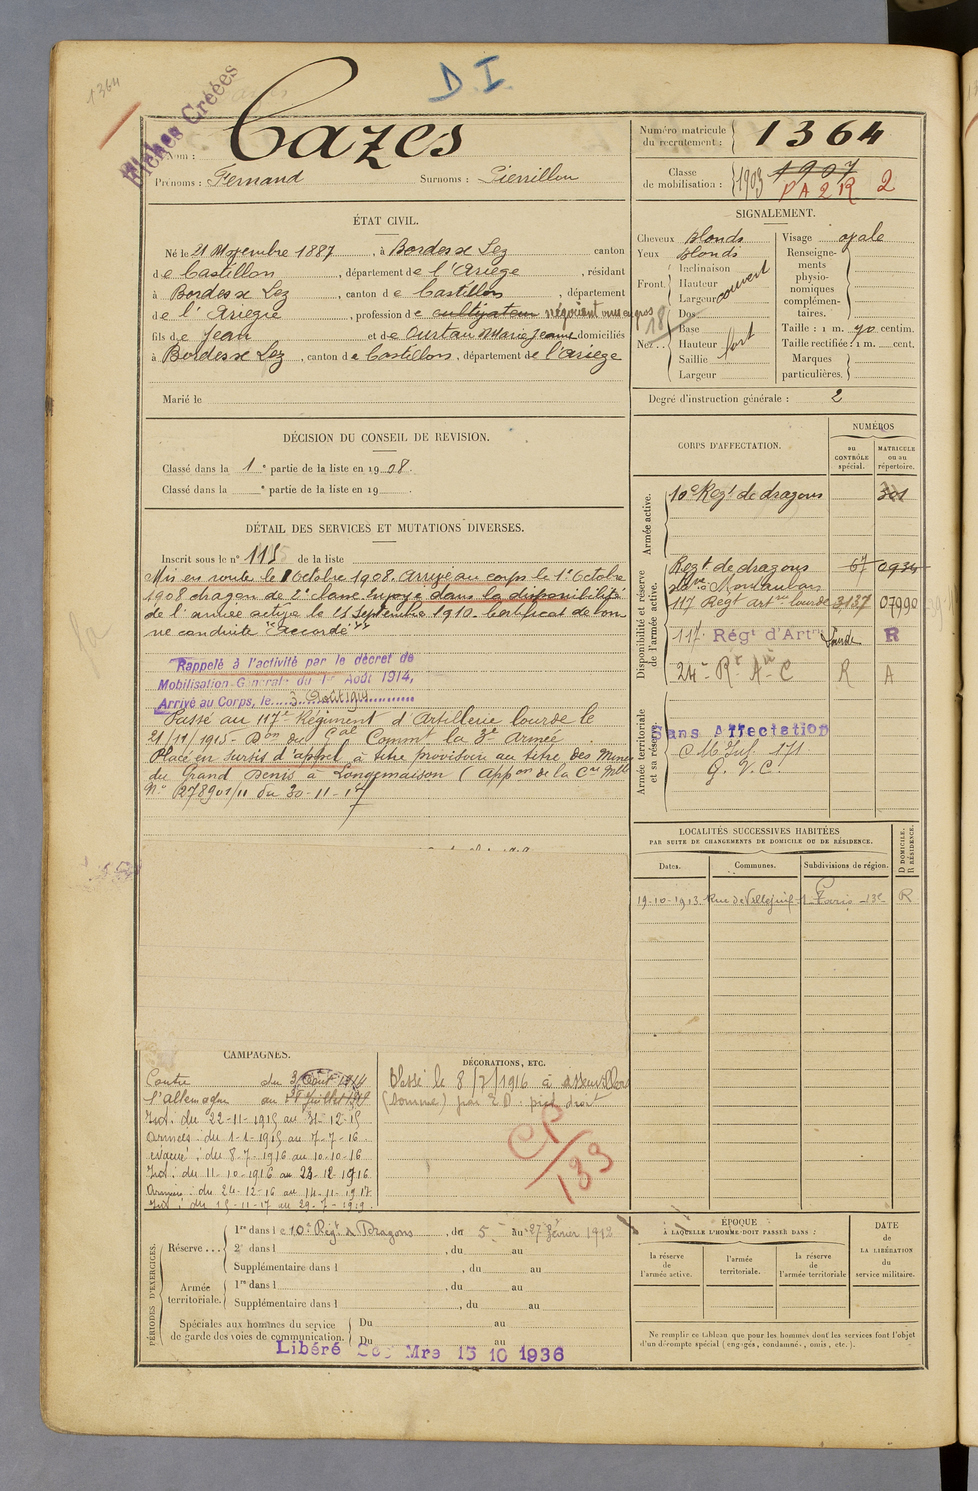 1364
D. I.
Fiches Créées
Nom : Cazes
Prénoms : Fernand Surnoms : Pierrillou
Numéro matricule du recrutement : 1364
Classe de mobilisation : 1903 1907
PA2R 2
ÉTAT CIVIL.
Né le 21 Novembre 1887, à Bordes s/ Lez canton
de Castillon, département de l'Ariège, résidant
à Bordes s/ Lez, canton de Castillon, département
de l'Ariège, profession de cultivateur négociant
fils de Jean et de Ourtau Marie Jeanne domiciliés
à Bordes s/ Lez, canton de Castillon, département de l'Ariège
Marié le
SIGNALEMENT.
Cheveux blonds
Yeux blonds
Front. Inclinaison
Hauteur
Largeur couvert
Nez... Dos
Base
Hauteur fort
Saillie
Largeur
Visage ovale
Renseignements physionomiques complémentaires.
Taille : 1 m. 70 centim.
Taille rectifiée : 1 m. cent.
Marques particulières.
Degré d'instruction générale : 2
DÉCISION DU CONSEIL DE REVISION.
Classé dans la 1e partie de la liste en 1908.
Classé dans la e partie de la liste en 19 .
DÉTAIL DES SERVICES ET MUTATIONS DIVERSES.
Inscrit sous le n° 115 de la liste
Mis en route le 1 Octobre 1908. Arrivé au corps le 1er Octobre
1908 dragon de 2e classe. Envoyé dans la disponibilité
de l'armée active le 25 Septembre 1910. Certificat de bon-
ne conduite "accordé"
Rappelé à l'activité par le décret de
Mobilisation Générale du 1er Août 1914,
Arrivé au Corps, le 3 Août 1914
Passé au 117e Régiment d'Artillerie lourde le
21/11/1915 - Don du Gal Commt la 3e Armée
Placé en sursis d'appel à titre provisoire au titre des Mines
du Grand Denis à Longemaison (Appon de la Cre Mlle
N° R78901/11 du 30-11-17
CORPS D'AFFECTATION.
NUMÉROS
au CONTRÔLE spécial.
MATRICULE ou au répertoire.
Armée active.
10e Régt de dragons 301
Disponibilité et réserve de l'armée active.
Regt de dragons 67 0934
à Montauban
117 Régt artie lourde 3137 07990
117 Régt d'Artie Lourde R
24e Rt Aie C R A
Armée territoriale et sa réserve.
Sans Affectation
C M Inf. 171
G. V. C.
LOCALITÉS SUCCESSIVES HABITÉES
PAR SUITE DE CHANGEMENTS DE DOMICILE OU DE RÉSIDENCE.
Dates. Communes. Subdivisions de région. D DOMICILE. R RÉSIDENCE.
19-10-1913. Rue de Villejuif Paris - 13e R
CAMPAGNES.
Contre du 3 Août 1914
l'Allemagne au 29 Juillet 1919
Int. du 22-11-1915 au 31-12-15
Armées : du 1-1-1915 au 7-7-16
évacué : du 8-7-1916 au 10-10-16
Int : du 11-10-1916 au 23-12-1916
Armée : du 24-12-16 au 14-11-1917
Int : du 15-11-17 au 29-7-1919.
DÉCORATIONS, ETC.
Blessé le 8/7/1916 à Assevillers
(Somme) par E O : pied droit
CP/133
PÉRIODES D'EXERCICES.
Réserve... 1re dans le 10e Régt de Dragons, du 5 au 27 Février 1912
2e dans l , du au
Supplémentaire dans l , du au
Armée territoriale. 1re dans l , du au
Supplémentaire dans l , du au
Spéciales aux hommes du service de garde des voies de communication. Du au
Du au
Libéré Mre 15 10 1936
ÉPOQUE
À LAQUELLE L'HOMME DOIT PASSER DANS :
la réserve de l'armée active.
l'armée territoriale.
la réserve de l'armée territoriale
DATE DE LA LIBÉRATION du service militaire.
Ne remplir ce tableau que pour les hommes dont les services font l'objet
d'un décompte spécial (engagés, condamnés, omis, etc.).